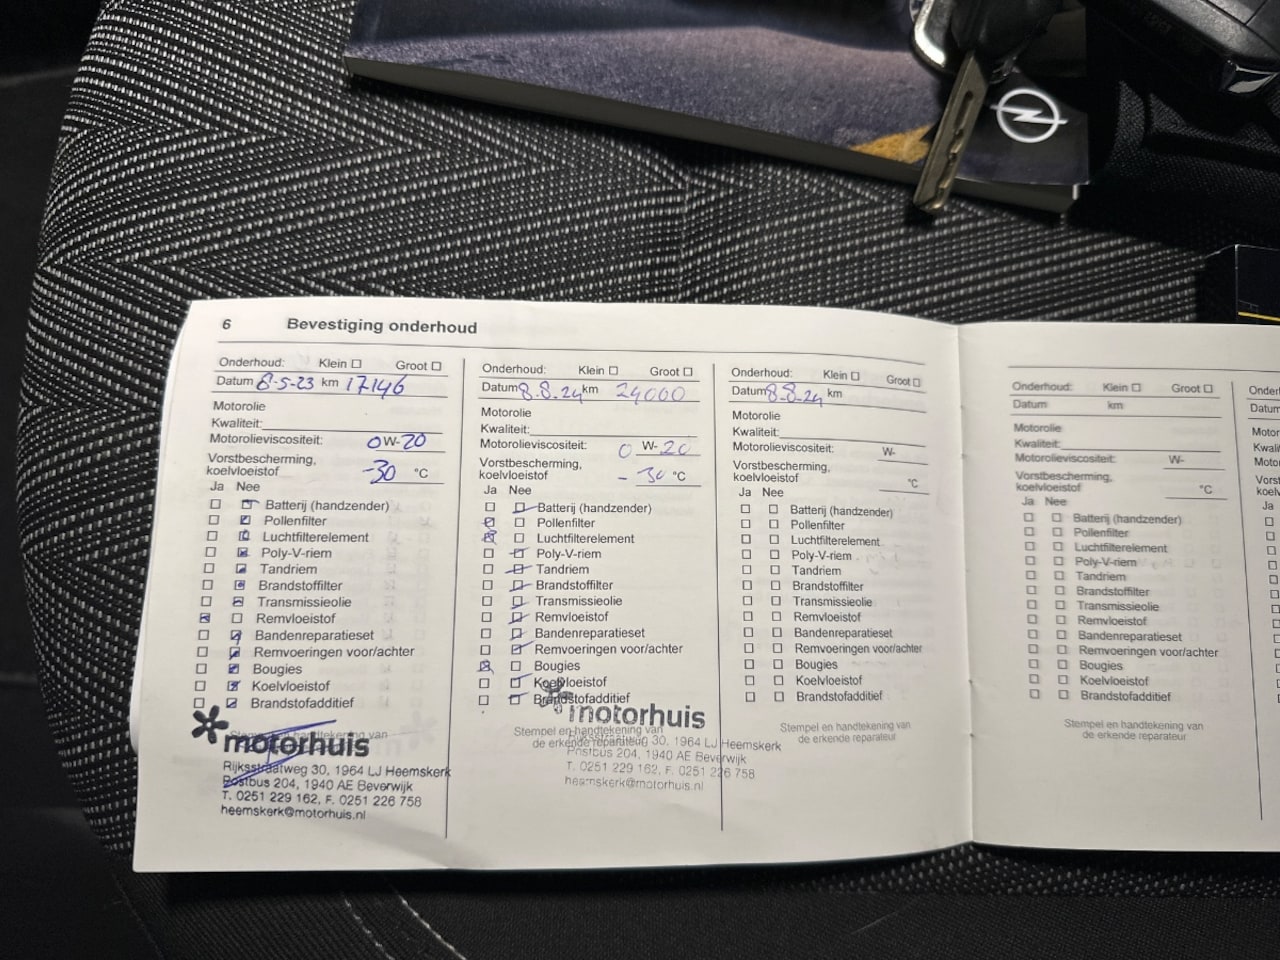 6 Bevestiging onderhoud
Onderhoud: Klein ☐ Groot ☐
Datum 8-5-23 km 17146
Motorolie
Kwaliteit:
Motorolieviscositeit: 0 W-20
Vorstbescherming,
koelvloeistof -30 °C
Ja Nee
Batterij (handzender)
Pollenfilter
Luchtfilterelement
Poly-V-riem
Tandriem
Brandstoffilter
Transmissieolie
Remvloeistof
Bandenreparatieset
Remvoeringen voor/achter
Bougies
Koelvloeistof
Brandstofadditief
motorhuis
Rijksstraatweg 30, 1964 LJ Heemskerk
Postbus 204, 1940 AE Beverwijk
T. 0251 229 162, F. 0251 226 758
heemskerk@motorhuis.nl
Onderhoud: Klein ☐ Groot ☐
Datum 8.8.24 km 24000
Motorolie
Kwaliteit:
Motorolieviscositeit: 0 W-20
Vorstbescherming,
koelvloeistof -30 °C
Ja Nee
Batterij (handzender)
Pollenfilter
Luchtfilterelement
Poly-V-riem
Tandriem
Brandstoffilter
Transmissieolie
Remvloeistof
Bandenreparatieset
Remvoeringen voor/achter
Bougies
Koelvloeistof
Brandstofadditief
motorhuis
Stempel en handtekening van
de erkende reparateur
Rijksstraatweg 30, 1964 LJ Heemskerk
Postbus 204, 1940 AE Beverwijk
T. 0251 229 162, F. 0251 226 758
heemskerk@motorhuis.nl
Onderhoud: Klein ☐ Groot ☐
Datum 8-8-24 km
Motorolie
Kwaliteit:
Motorolieviscositeit: W-
Vorstbescherming,
koelvloeistof °C
Ja Nee
Batterij (handzender)
Pollenfilter
Luchtfilterelement
Poly-V-riem
Tandriem
Brandstoffilter
Transmissieolie
Remvloeistof
Bandenreparatieset
Remvoeringen voor/achter
Bougies
Koelvloeistof
Brandstofadditief
Stempel en handtekening van
de erkende reparateur
Onderhoud: Klein ☐ Groot ☐
Datum km
Motorolie
Kwaliteit:
Motorolieviscositeit: W-
Vorstbescherming,
koelvloeistof °C
Ja Nee
Batterij (handzender)
Pollenfilter
Luchtfilterelement
Poly-V-riem
Tandriem
Brandstoffilter
Transmissieolie
Remvloeistof
Bandenreparatieset
Remvoeringen voor/achter
Bougies
Koelvloeistof
Brandstofadditief
Stempel en handtekening van
de erkende reparateur
Datum
Ja